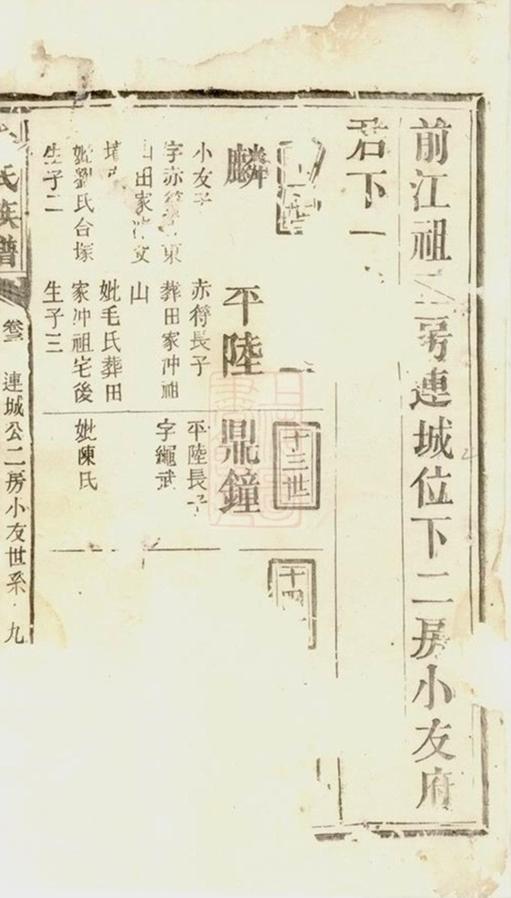 前江祖二房連城位下二房小友府
君下
麟
小友子
字赤符 東
山田家 
妣劉氏台塚
生子二
平陸
赤符長子
葬田家冲祖
山
妣毛氏葬田
家冲祖宅後
生子三
十三世
鼎鐘
平陸長子
字繩武
妣陳氏
十四
氏族譜
連城公二房小友世系 九